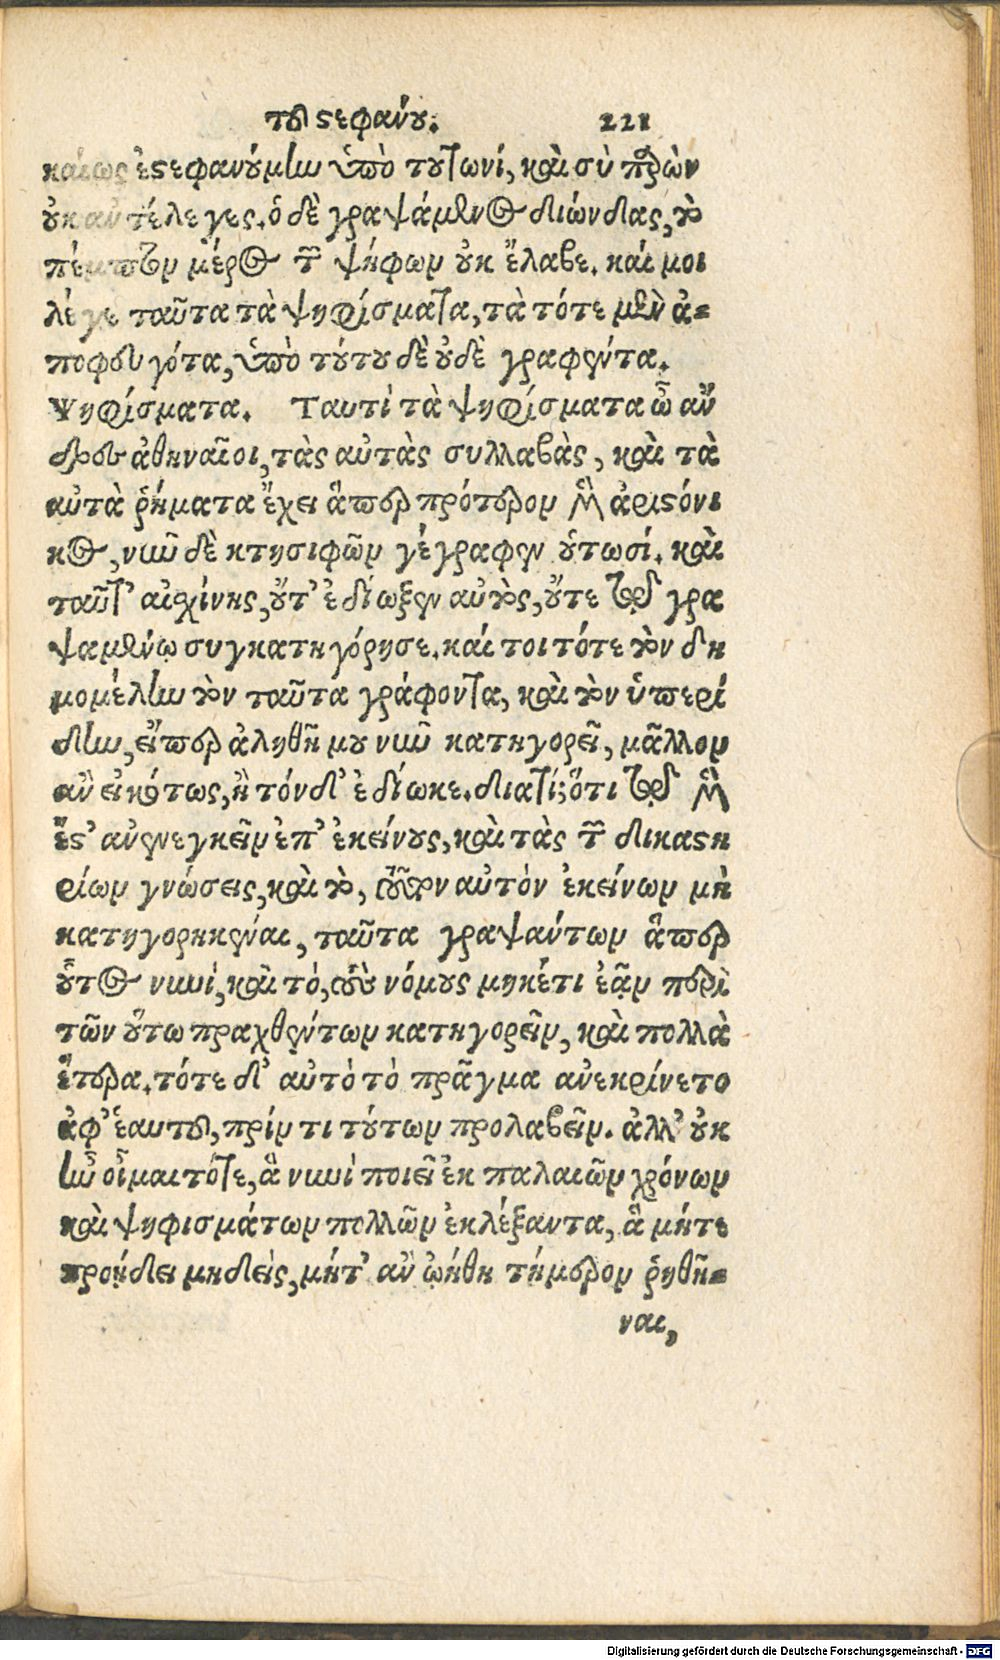 τοῦ στεφάνου. 221
καίως ἐστεφανούμην ὑπὸ τουτωνί, καὶ σὺ παρὼν
οὐκ ἀντέλεγες. ὁ δὲ γραψάμενος διώνδας, τὸ
πέμπτον μέρος τῶν ψήφων οὐκ ἔλαβε. καί μοι
λέγε ταῦτα τὰ ψηφίσματα, τὰ τότε μὲν ἀ-
ποφευγότα, ὑπὸ τούτου δὲ οὐδὲ γραφέντα.
Ψηφίσματα. Ταυτὶ τὰ ψηφίσματα ὦ ἄν
δρες ἀθηναῖοι, τὰς αὐτὰς συλλαβὰς, καὶ τὰ
αὐτὰ ῥήματα ἔχει ἅπερ πρότερον μὲν ἀριστόνι
κος, νῦν δὲ κτησιφῶν γέγραφεν οὑτωσί. καὶ
ταῦτ' αἰσχίνης, οὔτ' ἐδίωξεν αὐτὸς, οὔτε τῷ γρα
ψαμένῳ συγκατηγόρησε. καί τοι τότε τὸν δη
μομέλην τὸν ταῦτα γράφοντα, καὶ τὸν ὑπερί
δην, εἴπερ ἀληθῆ μου νῦν κατηγορεῖ, μᾶλλον
ἂν εἰκότως, ἢ τόνδ' ἐδίωκε. διατί; ὅτι τῷδε μὲν
ἔστ' ἀνενεγκεῖν ἐπ' ἐκείνους, καὶ τὰς τῶν δικαστη
ρίων γνώσεις, καὶ τὸ, τοῦτον αὐτὸν ἐκείνων μὴ
κατηγορηκέναι, ταῦτα γραψάντων ἅπερ
οὗτος νυνὶ, καὶ τὸ, τοὺς νόμους μηκέτι ἐᾷν περὶ
τῶν οὕτω πραχθέντων κατηγορεῖν, καὶ πολλὰ
ἕτερα. τότε δ' αὐτὸ τὸ πρᾶγμα ἀνεκρίνετο
ἀφ' ἑαυτοῦ, πρίν τι τούτων προλαβεῖν. ἀλλ' οὐκ
ἦν οἶμαι τότε, ἃ νυνὶ ποιεῖ ἐκ παλαιῶν χρόνων
καὶ ψηφισμάτων πολλῶν ἐκλέξαντα, ἃ μήτε
προῄδει μηδεὶς, μήτ' ἂν ᾠήθη τήμερον ῥηθῆ-
ναι,
Digitalisierung gefördert durch die Deutsche Forschungsgemeinschaft - DFG